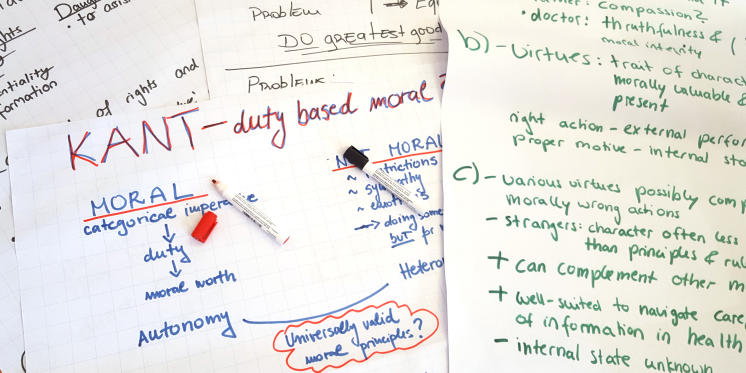 Problem
→ Eq
DO greatest good
Problem:
to assis
hts
entiality
formation
of rights and
KANT – duty based moral
MORAL
categorical imperative
↓
duty
↓
moral worth
Autonomy
NOT MORAL
~ sympathy
→ doing some
BUT for
Hetero
Universally valid
moral principles?
compassion?
• doctor: thruthfulness & (
moral integrity
b) – Virtues: trait of charac
morally valuable &
present
right action – external perfor
proper motive – internal sta
c) – various virtues possibly comp
morally wrong actions
– strangers: character often less
than principles & rul
+ can complement other m
+ well-suited to navigate care,
of information in health
– internal state unknown